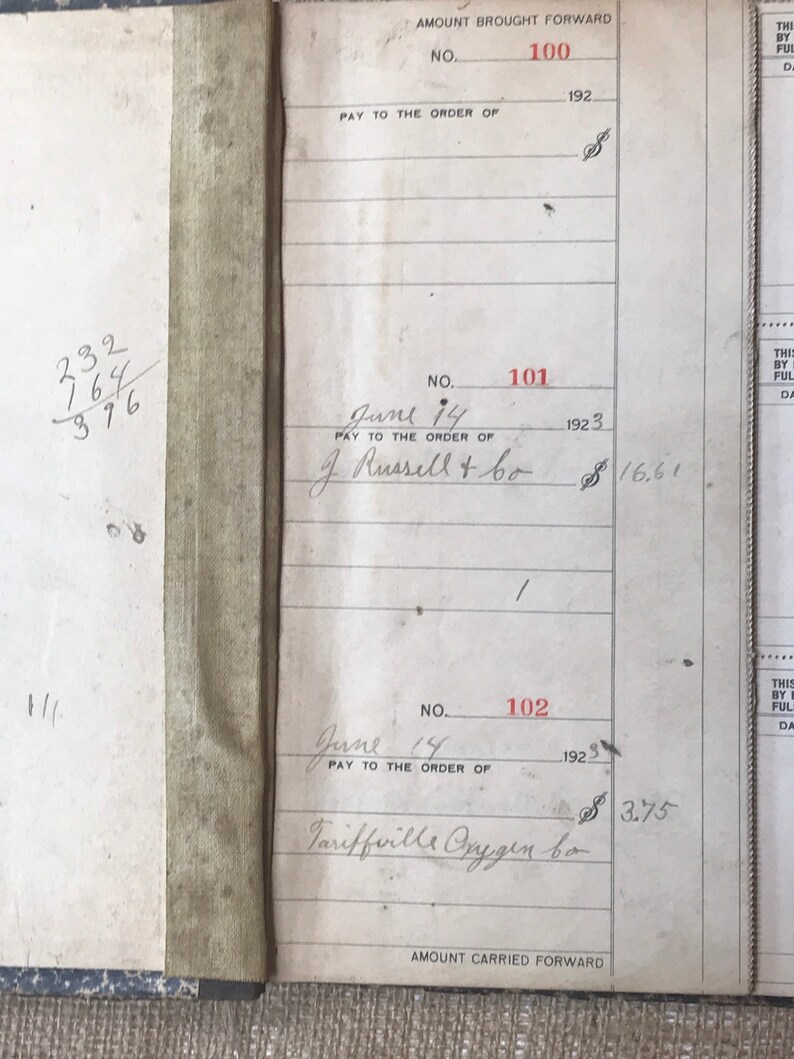 232
164
396
111
AMOUNT BROUGHT FORWARD
NO. 100
192
PAY TO THE ORDER OF
$
NO. 101
June 14 1923
PAY TO THE ORDER OF
J Russell & Co $ 16.61
1
NO. 102
June 14 1923
PAY TO THE ORDER OF
$ 3.75
Tariffville Oxygen Co
AMOUNT CARRIED FORWARD
THI
BY
FUL
DA
THIS
BY
FUL
DA
THIS
BY
FUL
DA